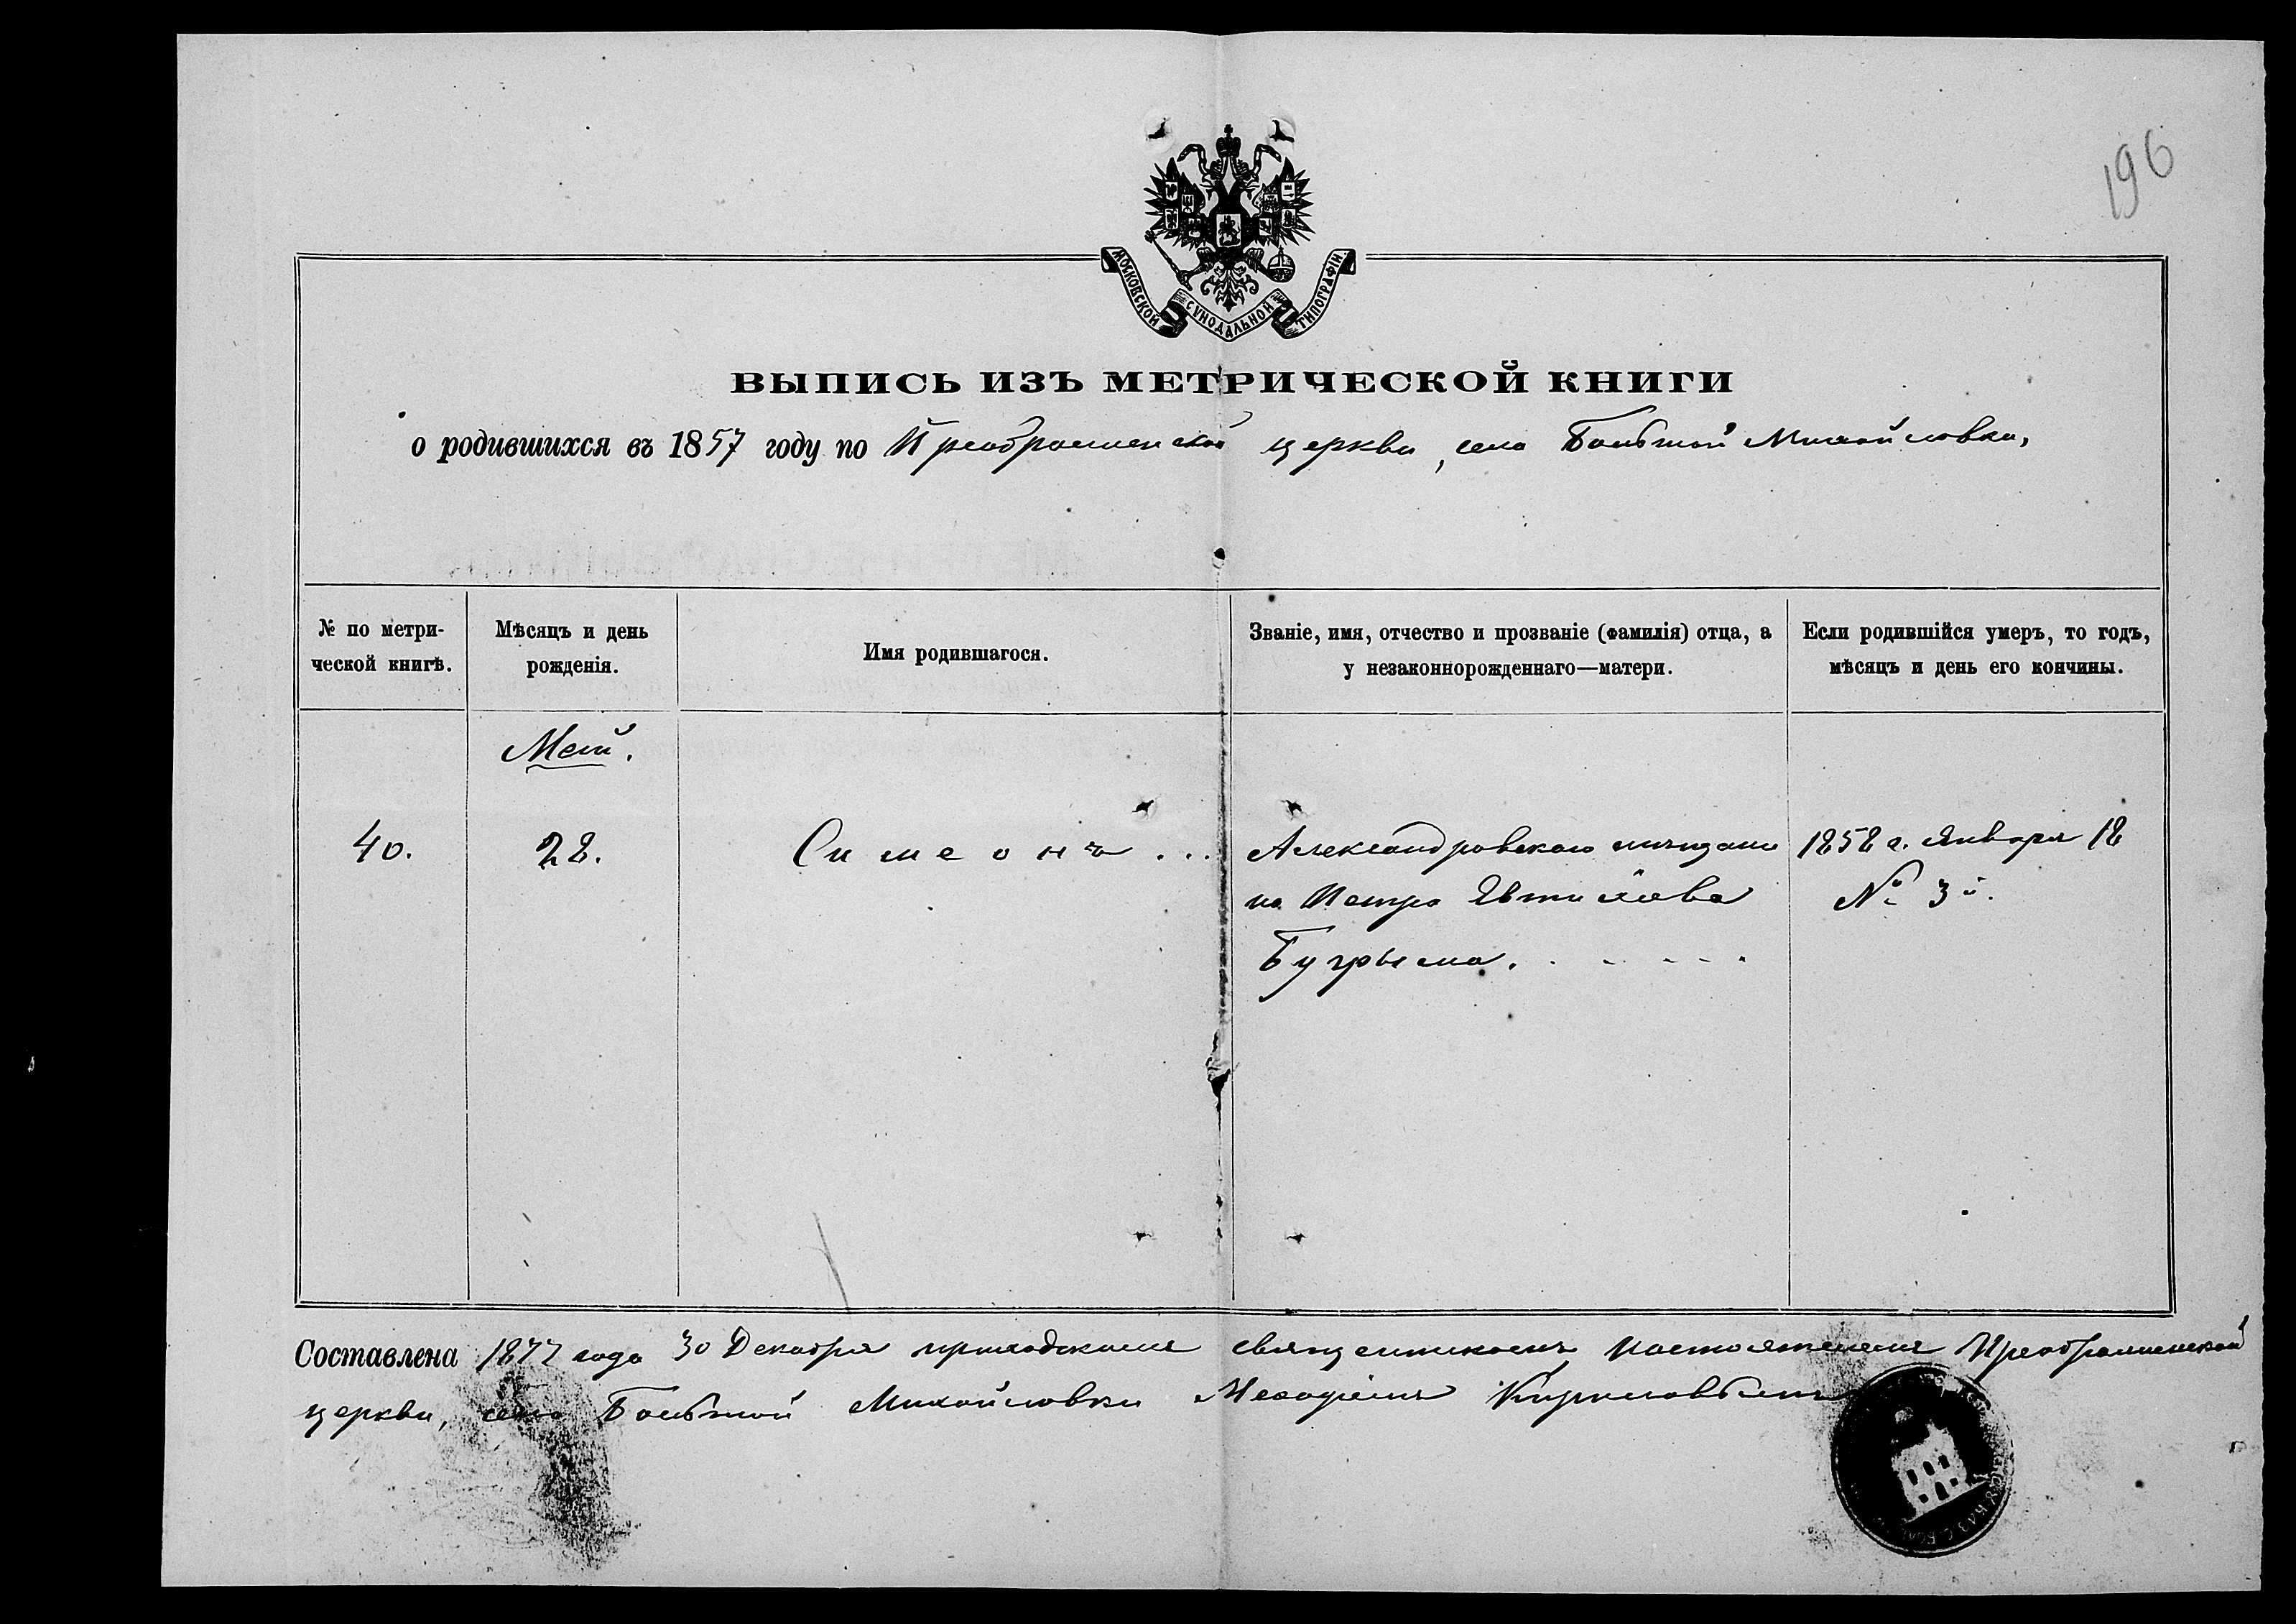 196
МОСКОВСКОЙ СѴНОДАЛЬНОЙ ТИПОГРАФІИ
ВЫПИСЬ ИЗЪ МЕТРИЧЕСКОЙ КНИГИ
о родившихся въ 1857 году по Преображенской церкви, села Большой Михайловки,
№ по метри-
ческой книгѣ.
Мѣсяцъ и день
рожденія.
Имя родившагося.
Званіе, имя, отчество и прозваніе (фамилія) отца, а
у незаконнорожденнаго—матери.
Если родившійся умеръ, то годъ,
мѣсяцъ и день его кончины.
40.
28.
Симеонъ...
Александровскаго мѣщани
на Петра Евтихіева
Бугрыма.
1858 г. Января 18
№ 3й.
Составлена 1877 года 30 Декабря приходскимъ священникомъ Настоятелемъ Преображенской
церкви, села Большой Михайловки Меѳодіемъ